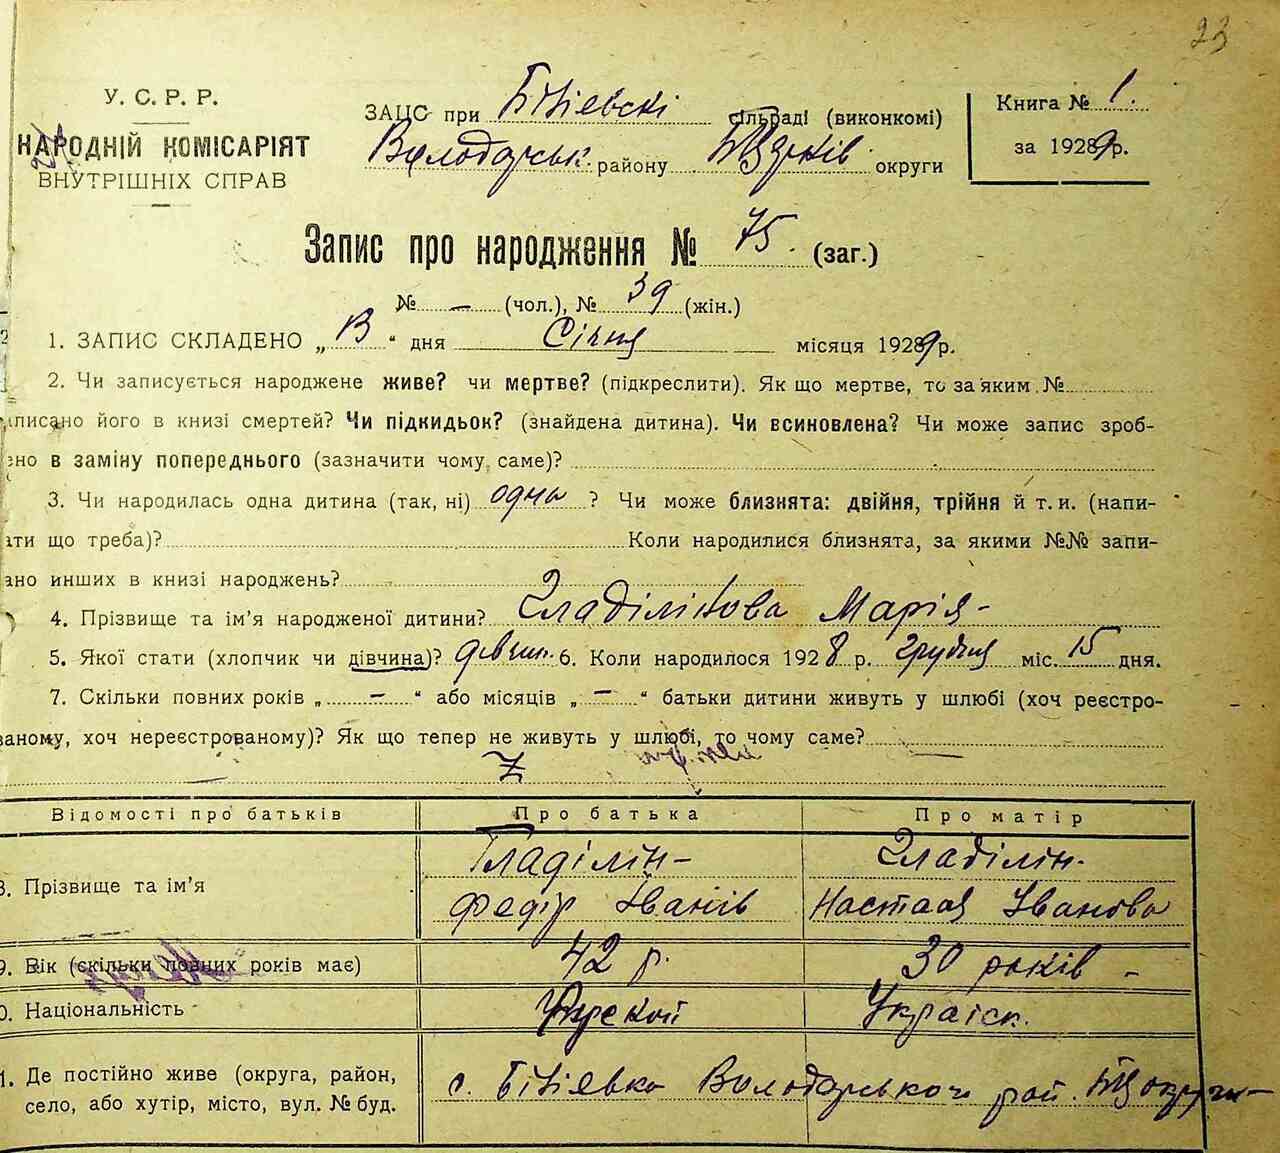 23
У. С. Р. Р.
НАРОДНІЙ КОМІСАРІЯТ
ВНУТРІШНІХ СПРАВ
ЗАЦС при сільраді (виконкомі)
Володарськ. району БЦерків округи
Книга № 1.
за 1929 р.
Запис про народження № 75. (заг.)
№ — (чол.), № 39 (жін.)
1. ЗАПИС СКЛАДЕНО „ “ дня Січня місяця 1929 р.
2. Чи записується народжене живе? чи мертве? (підкреслити). Як що мертве, то за яким №
писано його в книзі смертей? Чи підкидьок? (знайдена дитина). Чи всиновлена? Чи може запис зроб-
ено в заміну попереднього (зазначити чому саме)?
3. Чи народилась одна дитина (так, ні) одна ? Чи може близнята: двійня, трійня й т. и. (напи-
ати що треба)? Коли народилися близнята, за якими №№ запи-
ано инших в книзі народжень?
4. Прізвище та ім'я народженої дитини? Гладілінова Марія -
5. Якої стати (хлопчик чи дівчина)? дівчин. 6. Коли народилося 1928 р. грудня міс. 15 дня.
7. Скільки повних років „ — “ або місяців „ — “ батьки дитини живуть у шлюбі (хоч реєстро-
ваному, хоч нереєстрованому)? Як що тепер не живуть у шлюбі, то чому саме? —
Відомості про батьків Про батька Про матір
8. Прізвище та ім'я Гладілін - Гладілін.
Федір Іванів Настася Іванова
9. Вік (скільки повних років має) 42 р. 30 років -
0. Національність Українск.
1. Де постійно живе (округа, район, с. Володарського рай. БЦ округи -
село, або хутір, місто, вул. № буд.